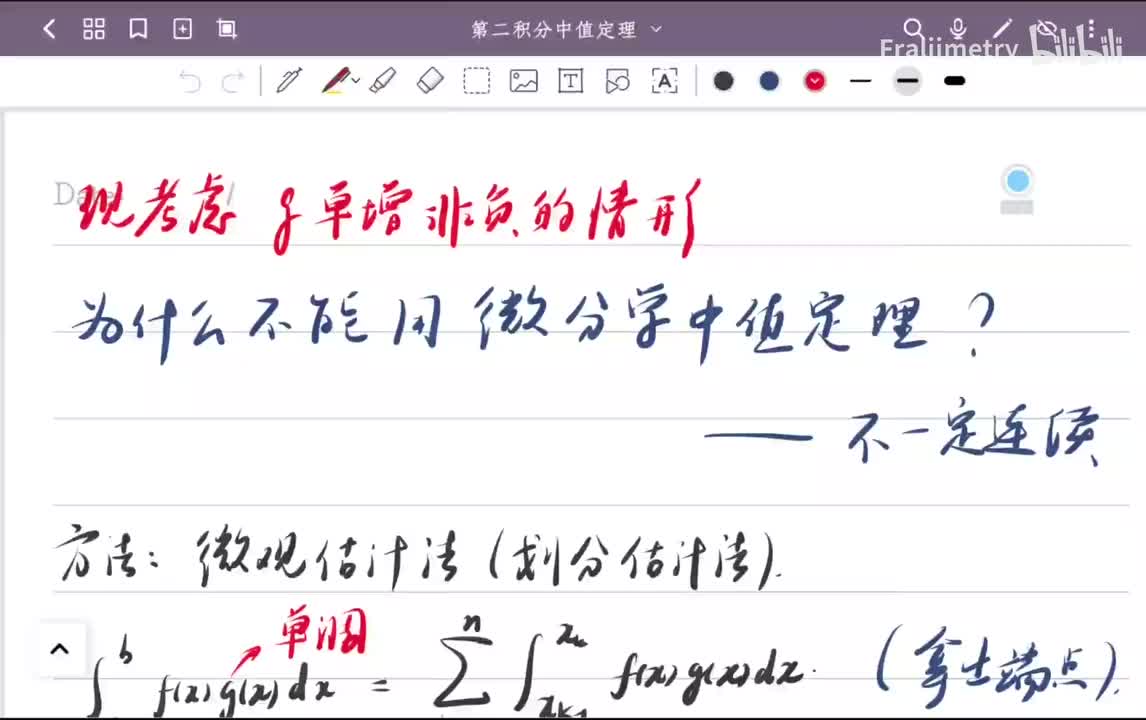 第二积分中值定理
Fraljimetry bilibili
现考虑 g单增非负的情形
为什么不能用微分学中值定理？
—— 不一定连续
方法：微观估计法（划分估计法）.
单调
∫ᵇ f(x)g(x)dx = ∑ⁿ ∫_{xₖ₋₁}^{xₖ} f(x)g(x)dx. （拿出端点）.